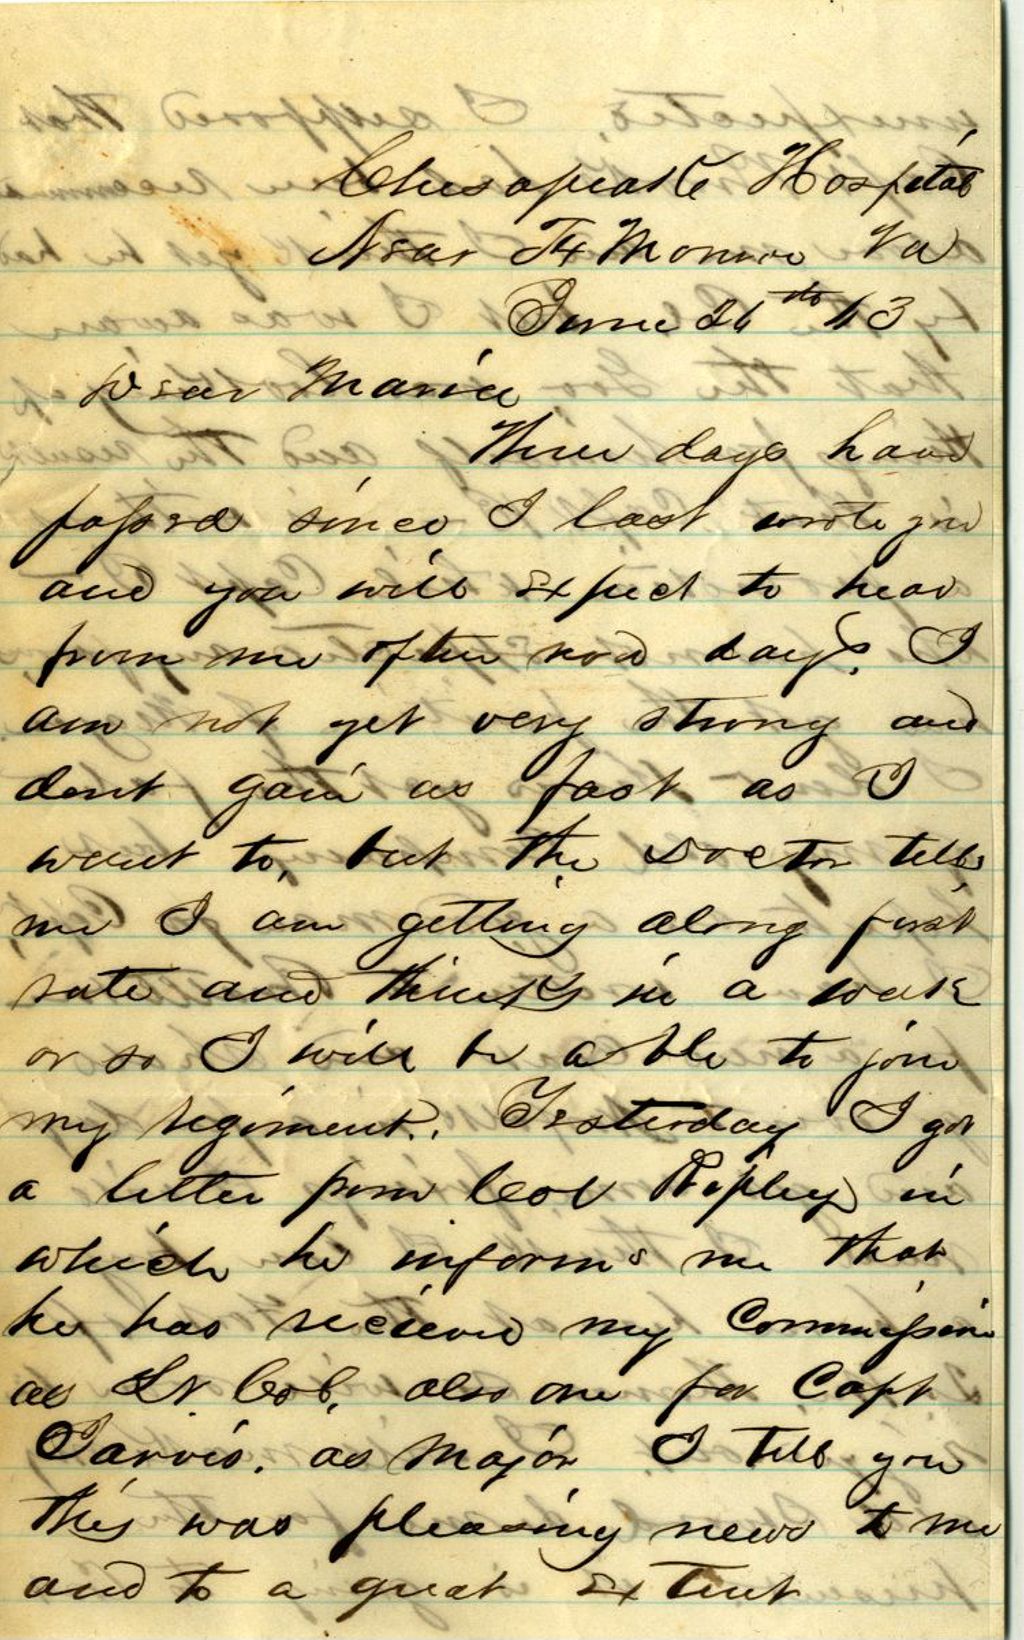 Chesapeake Hospital
Near Ft Monroe Va
June 26th 63
Dear Maria
Three days have
passed since I last wrote you
and you will expect to hear
from me often now days. I
am not yet very strong and
dont gain as fast as I
want to, but the Doctor tells
me I am getting along first
rate and thinks in a week
or so I will be able to join
my regiment. Yesterday I got
a letter from Col Ripley in
which he informs me that
he has recieved my Commission
as Lt Col, also one for Capt
Jarvis. as Major I tell you
this was pleasing news to me
and to a great extent